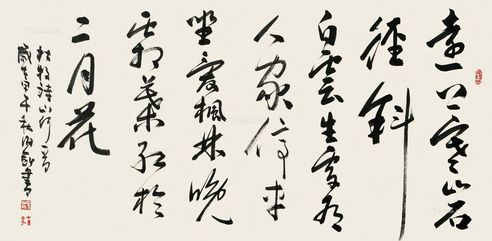 遠上寒山石
徑斜
白雲生處有
人家停車
坐愛楓林晚
霜葉紅於
二月花
杜牧詩山行一首
歲在甲午秋書